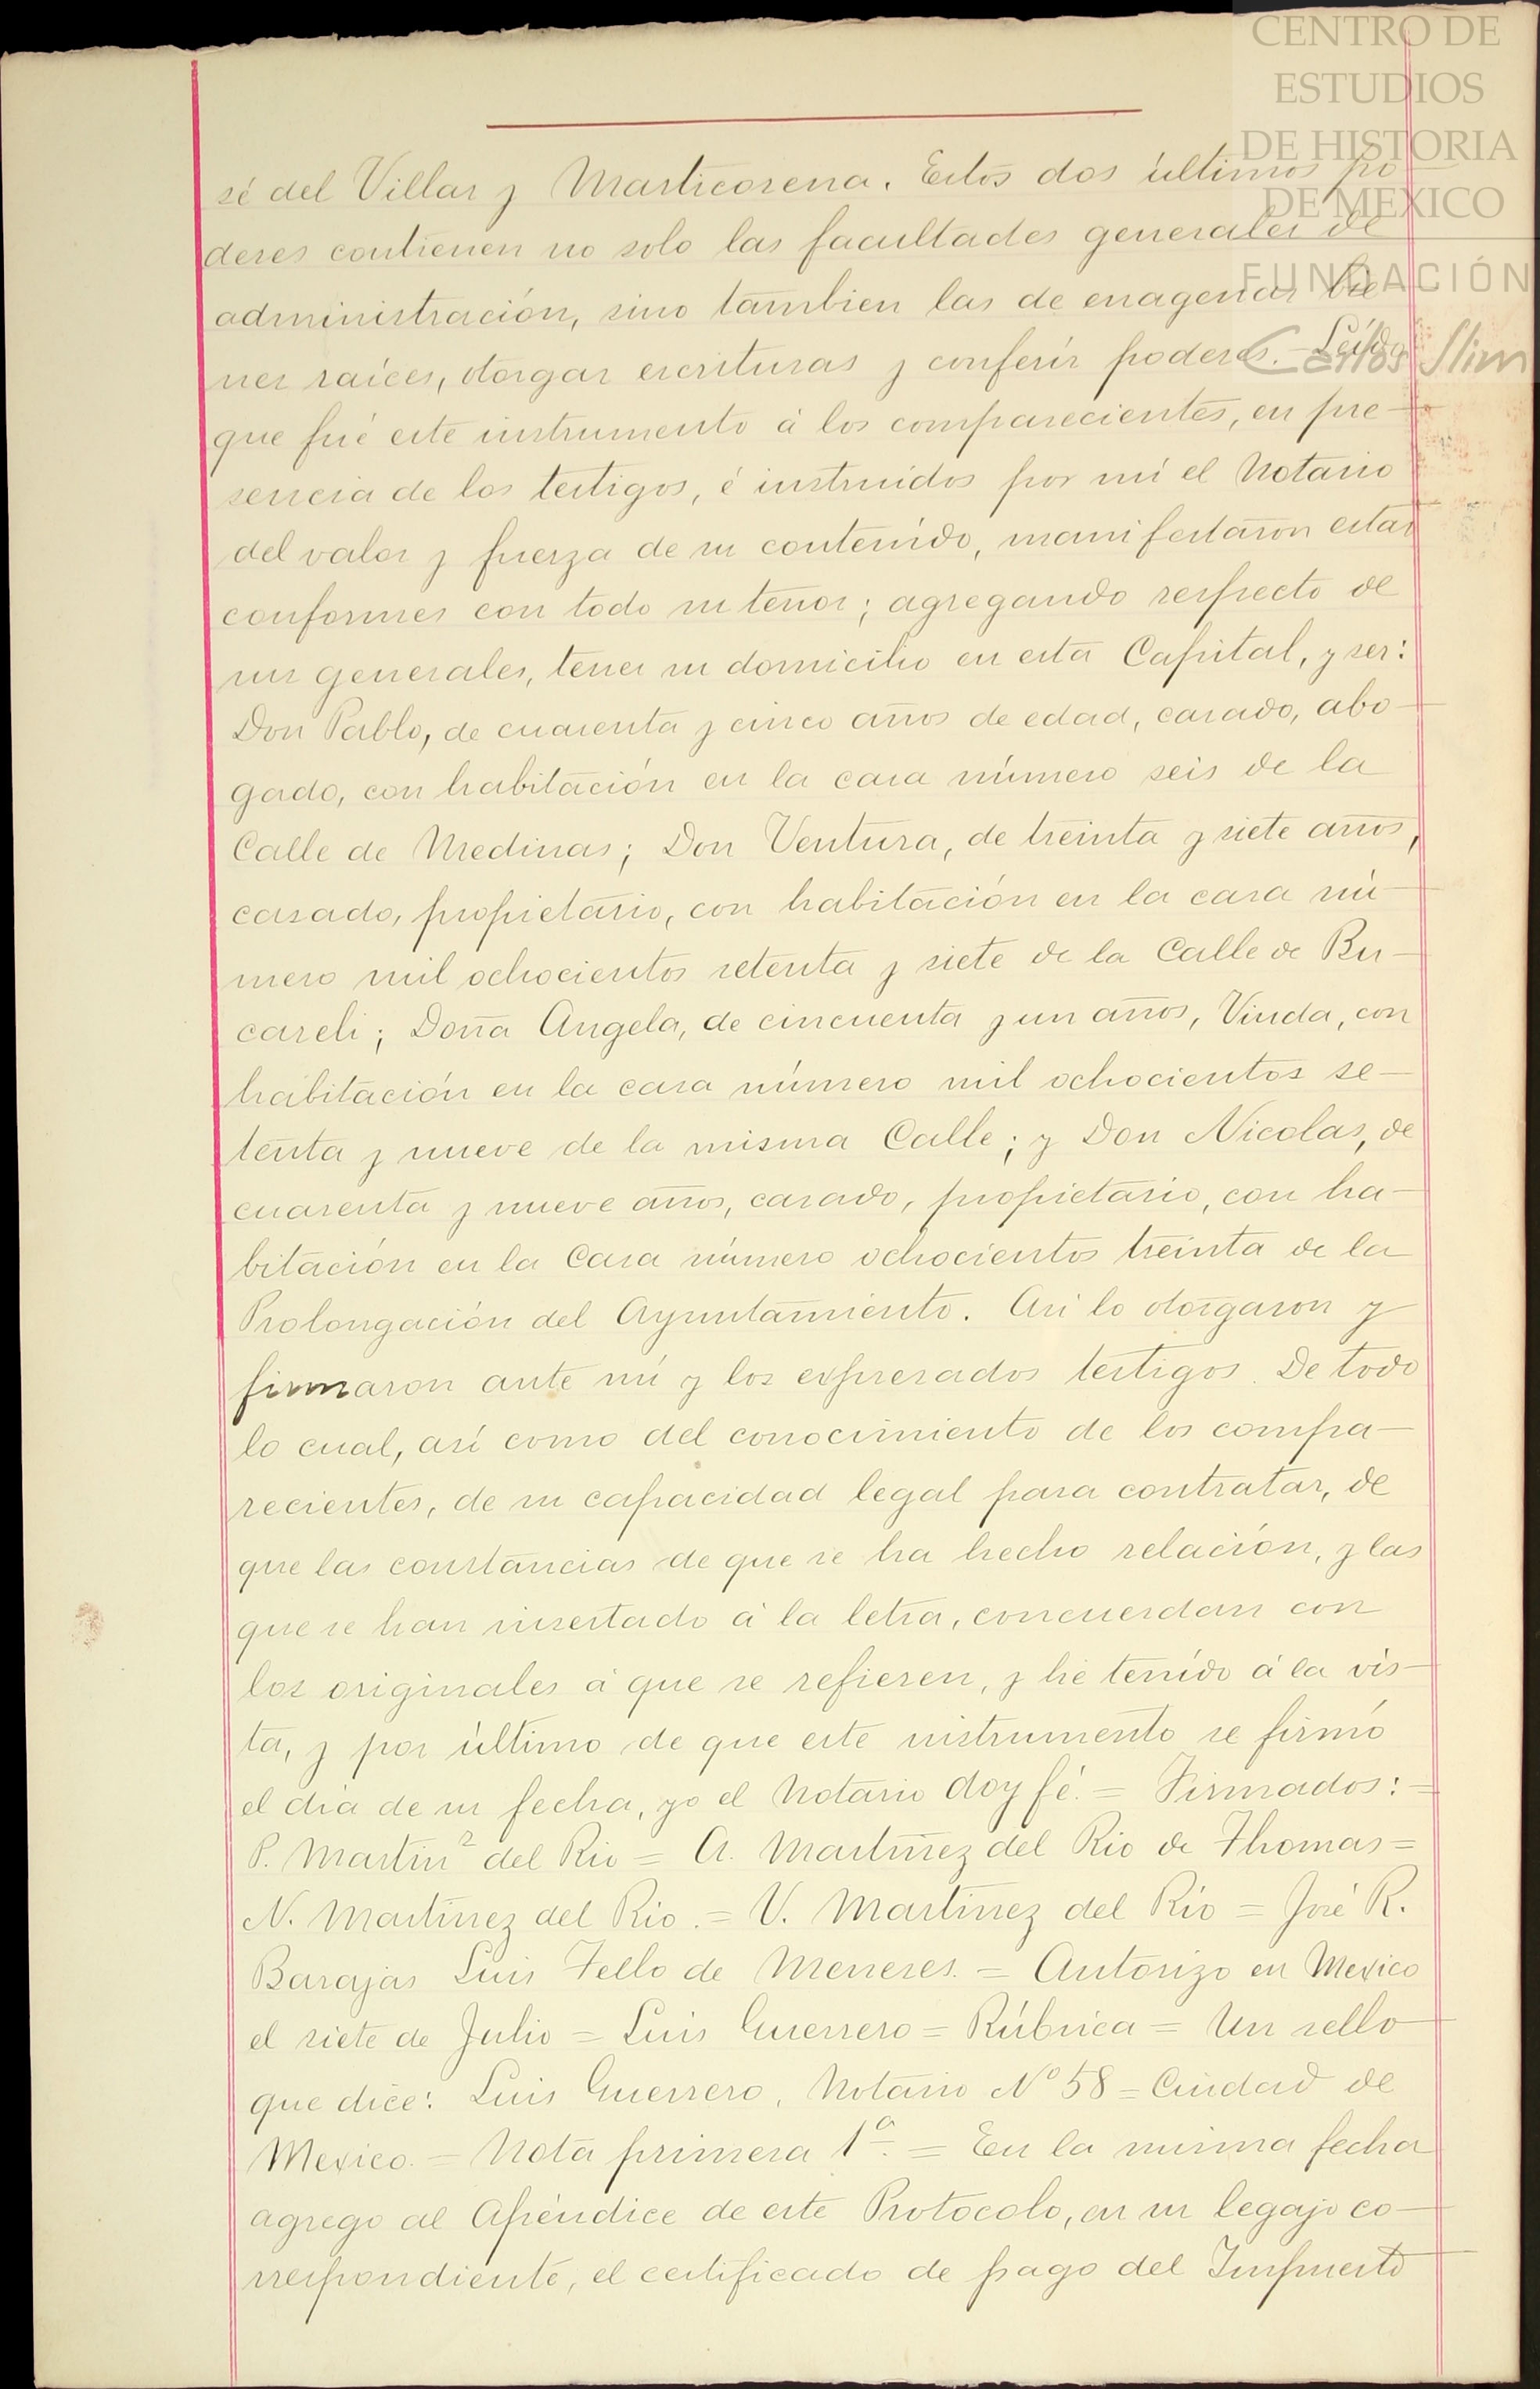 CENTRO DE
ESTUDIOS
DE HISTORIA
DE MEXICO
FUNDACIÓN
Carlos Slim
sé del Villar y Marticorena. Estos dos últimos po
deres contienen no solo las facultades generales de
administración, sino tambien las de enagenar bie
nes raíces, otorgar escrituras y conferir poderes. - Leído
que fué este instrumento á los comparecientes, en pre-
sencia de los testigos, é instruidos por mí el Notario
del valor y fuerza de su contenido, manifestaron estar
conformes con todo su tenor; agregando respecto de
sus generales, tener su domicilio en esta Capital, y ser:
Don Pablo, de cuarenta y cinco años de edad, casado, abo-
gado, con habitación en la casa número seis de la
Calle de Medinas; Don Ventura, de treinta y siete años,
casado, propietario, con habitación en la casa nú-
mero mil ochocientos setenta y siete de la Calle de Bu-
careli; Doña Angela, de cincuenta y un años, Viuda, con
habitación en la casa número mil ochocientos se-
tenta y nueve de la misma Calle; y Don Nicolas, de
cuarenta y nueve años, casado, propietario, con ha-
bitación en la Casa número ochocientos treinta de la
Prolongación del Ayuntamiento. Asi lo otorgaron y
firmaron ante mí y los expresados testigos. De todo
lo cual, así como del conocimiento de los compa-
recientes, de su capacidad legal para contratar, de
que las constancias de que se ha hecho relación, y las
que se han insertado á la letra, concuerdan con
los originales á que se refieren, y hé tenido á la vis-
ta, y por último de que este instrumento se firmó
el día de su fecha, yo el Notario doy fé. = Firmados: =
P. Martinz del Rio = A. Martinez del Rio de Thomas =
N. Martinez del Rio. = V. Martinez del Río = José R.
Barajas Luis Tello de Meneses. = Autorizo en Mexico
el siete de Julio = Luis Guerrero = Rúbrica = Un sello
que dice: Luis Guerrero, Notario Nº 58 = Ciudad de
Mexico. = Nota primera 1ª. = En la misma fecha
agrego al Apéndice de este Protocolo, en su legajo co-
rrespondiente, el certificado de pago del Impuesto